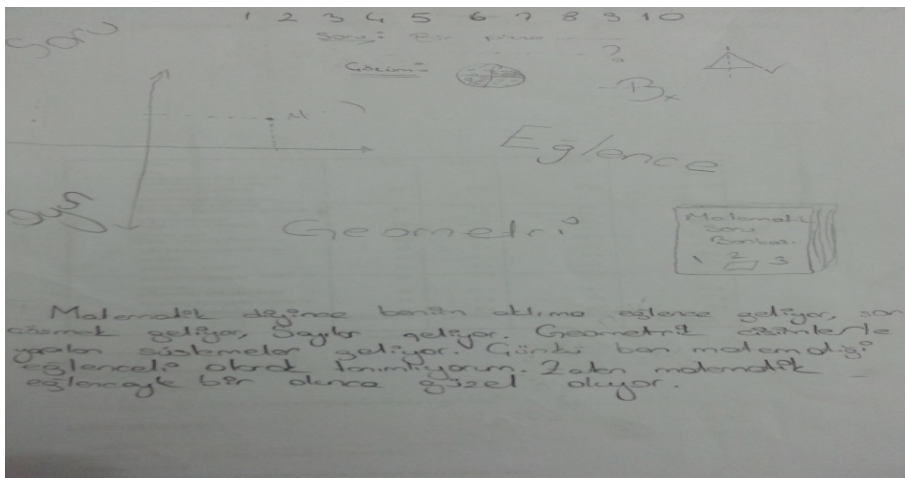 1 2 3 4 5 6 7 8 9 10
Soru
Soru: Bir
?
Çözüm:
M
Eğlence
Geometri
Matematik
Soru
Bankası
1 2 3
Matematik diyince benim aklıma eğlence geliyor, soru
çözmek geliyor, Sayılar geliyor. Geometrik cisimlerle
yapılan süslemeler geliyor. Çünkü ben matematiği
eğlenceli olarak tanımlıyorum. Zaten matematik
eğlenceyle bir olunca güzel oluyor.